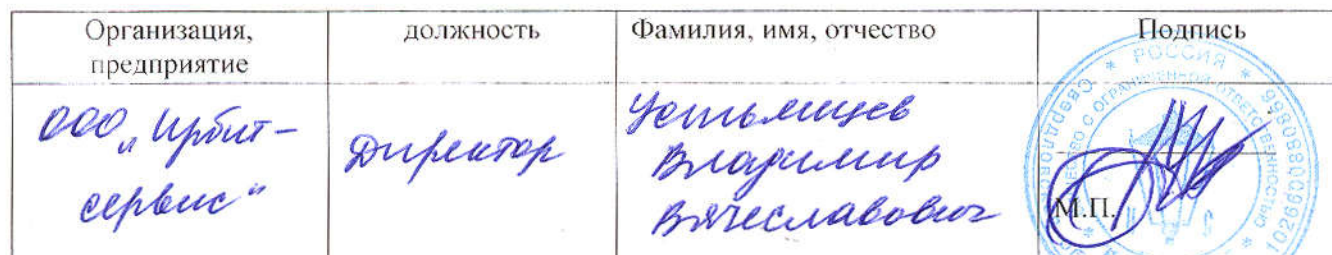 Организация, предприятие
должность
Фамилия, имя, отчество
Подпись
ООО „Ирбит-
сервис“
Директор
Устьянцев
Владимир
Вячеславович
М.П.
* РОССИЯ *
ОГРАНИЧЕННОЙ ОТВЕТСТВЕННОСТЬЮ